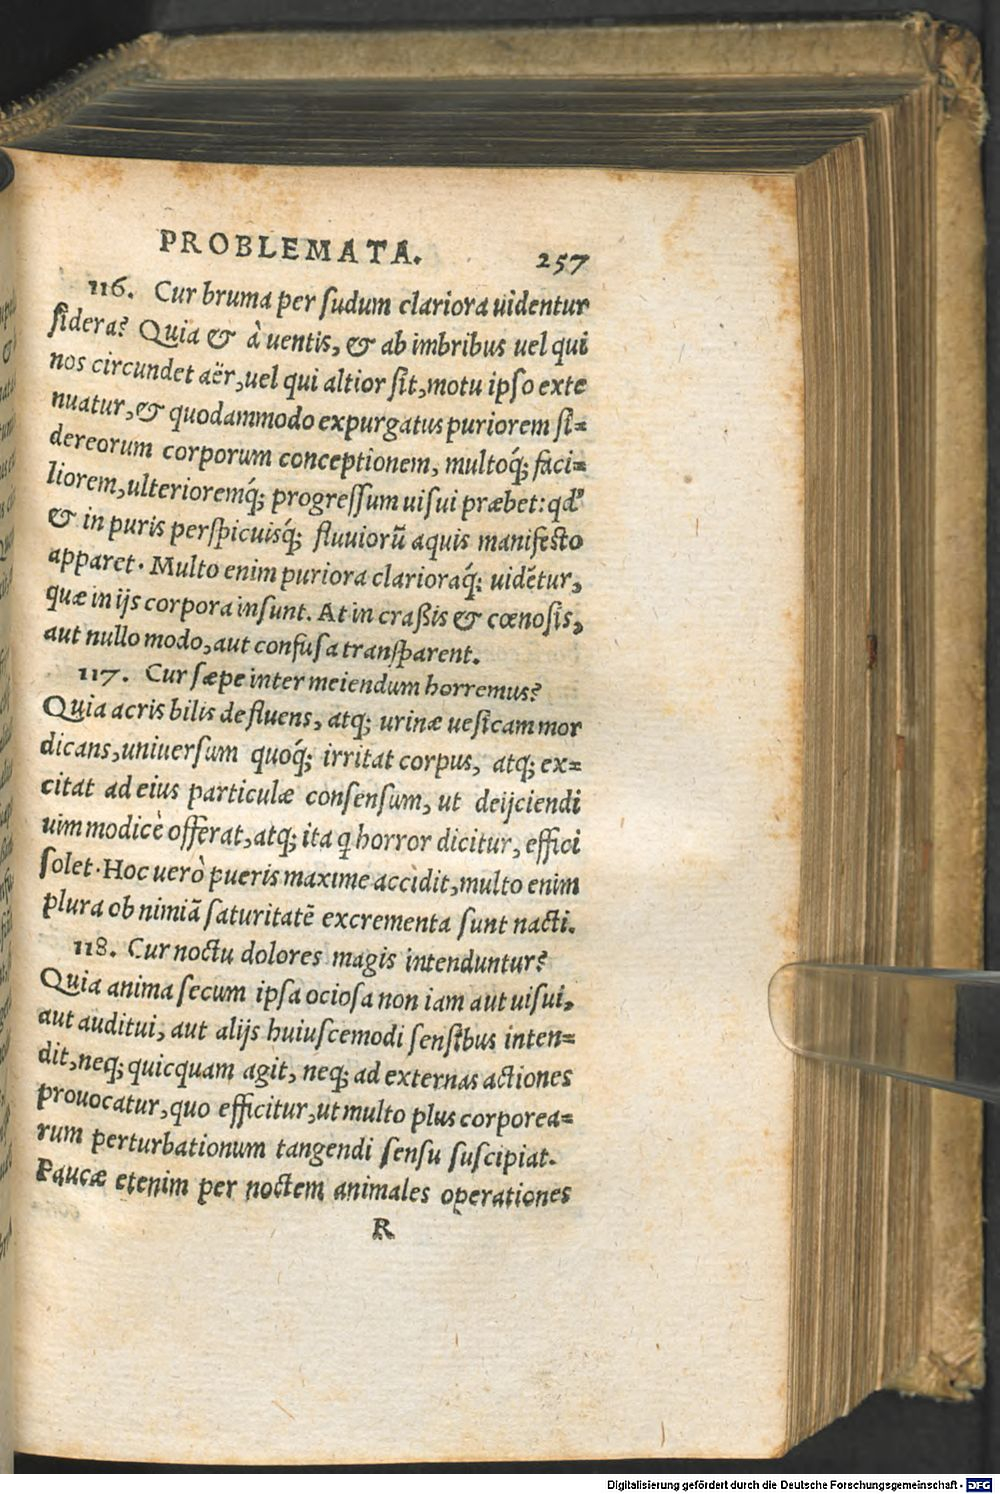 PROBLEMATA. 257
116. Cur bruma per ſudum clariora uidentur
ſidera? Quia & à uentis, & ab imbribus uel qui
nos circundet aër, uel qui altior ſit, motu ipſo exte
nuatur, & quodammodo expurgatus puriorem ſi=
dereorum corporum conceptionem, multoq́; faci=
liorem, ulterioremq́; progreſſum uiſui præbet: qd'
& in puris perſpicuisq́; fluuiorū aquis manifeſto
apparet. Multo enim puriora clarioraq́; uidētur,
quæ in ijs corpora inſunt. At in craßis & cœnoſis,
aut nullo modo, aut confuſa tranſparent.
117. Cur ſæpe inter meiendum horremus?
Quia acris bilis defluens, atq; urinæ ueſicam mor
dicans, uniuerſum quoq́; irritat corpus, atq; ex=
citat ad eius particulæ conſenſum, ut deijciendi
uim modicè offerat, atq; ita q horror dicitur, effici
ſolet. Hoc uerò pueris maxime accidit, multo enim
plura ob nimiā ſaturitatē excrementa ſunt nacti.
118. Cur noctu dolores magis intenduntur?
Quia anima ſecum ipſa ocioſa non iam aut uiſui,
aut auditui, aut alijs huiuſcemodi ſenſibus inten=
dit, neq; quicquam agit, neq; ad externas actiones
prouocatur, quo efficitur, ut multo plus corporea=
rum perturbationum tangendi ſenſu ſuſcipiat.
Paucæ etenim per noctem animales operationes
R
Digitalisierung gefördert durch die Deutsche Forschungsgemeinschaft - DFG